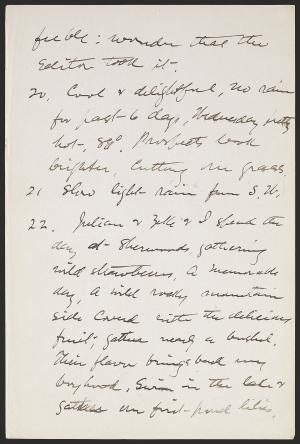 feeble: wonder that the
Editor took it.
20, Cool & delightful, no rain
for past 6 days, Wednesday pretty
hot, 88°. Prospects look
brighter, Cutting my grass.
21 Slow light rain from S.W.
22. Julian & & I spend the
day at Sherwoods, gathering
wild strawberries, a memorable
day, a wild rocky mountain
side covered with the delicious
fruit; gather nearly a bushel.
Their flavor brings back my
boyhood, Swim in the lake &
gather our first pond lilies.